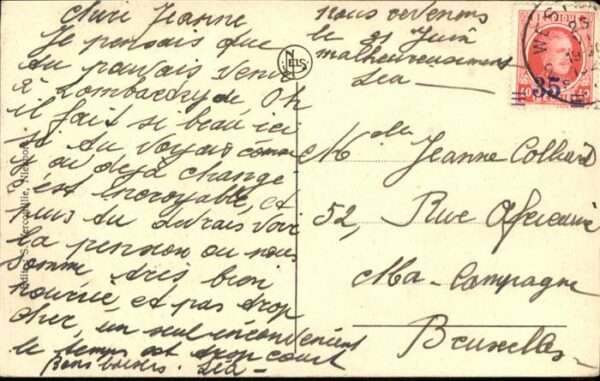 Cheri Jeanne
Je pensais que
tu pouvais venir
à Lombardzyde Oh
il fait si beau ici
si tu voyais comme
j'ai déjà changé
c'est incroyable, et
puis tu devrais voir
la pension ou nous
somme très bien
nourrie, et pas trop
cher, un seul inconvenient
le temps est trop court
Bons baisers. Léa
nous revenons
le 21 Juin
malheureusement
Léa
NELS
35
Mlle Jeanne Colliard
52, Rue Africaine
Ma-Campagne
Bruxelles